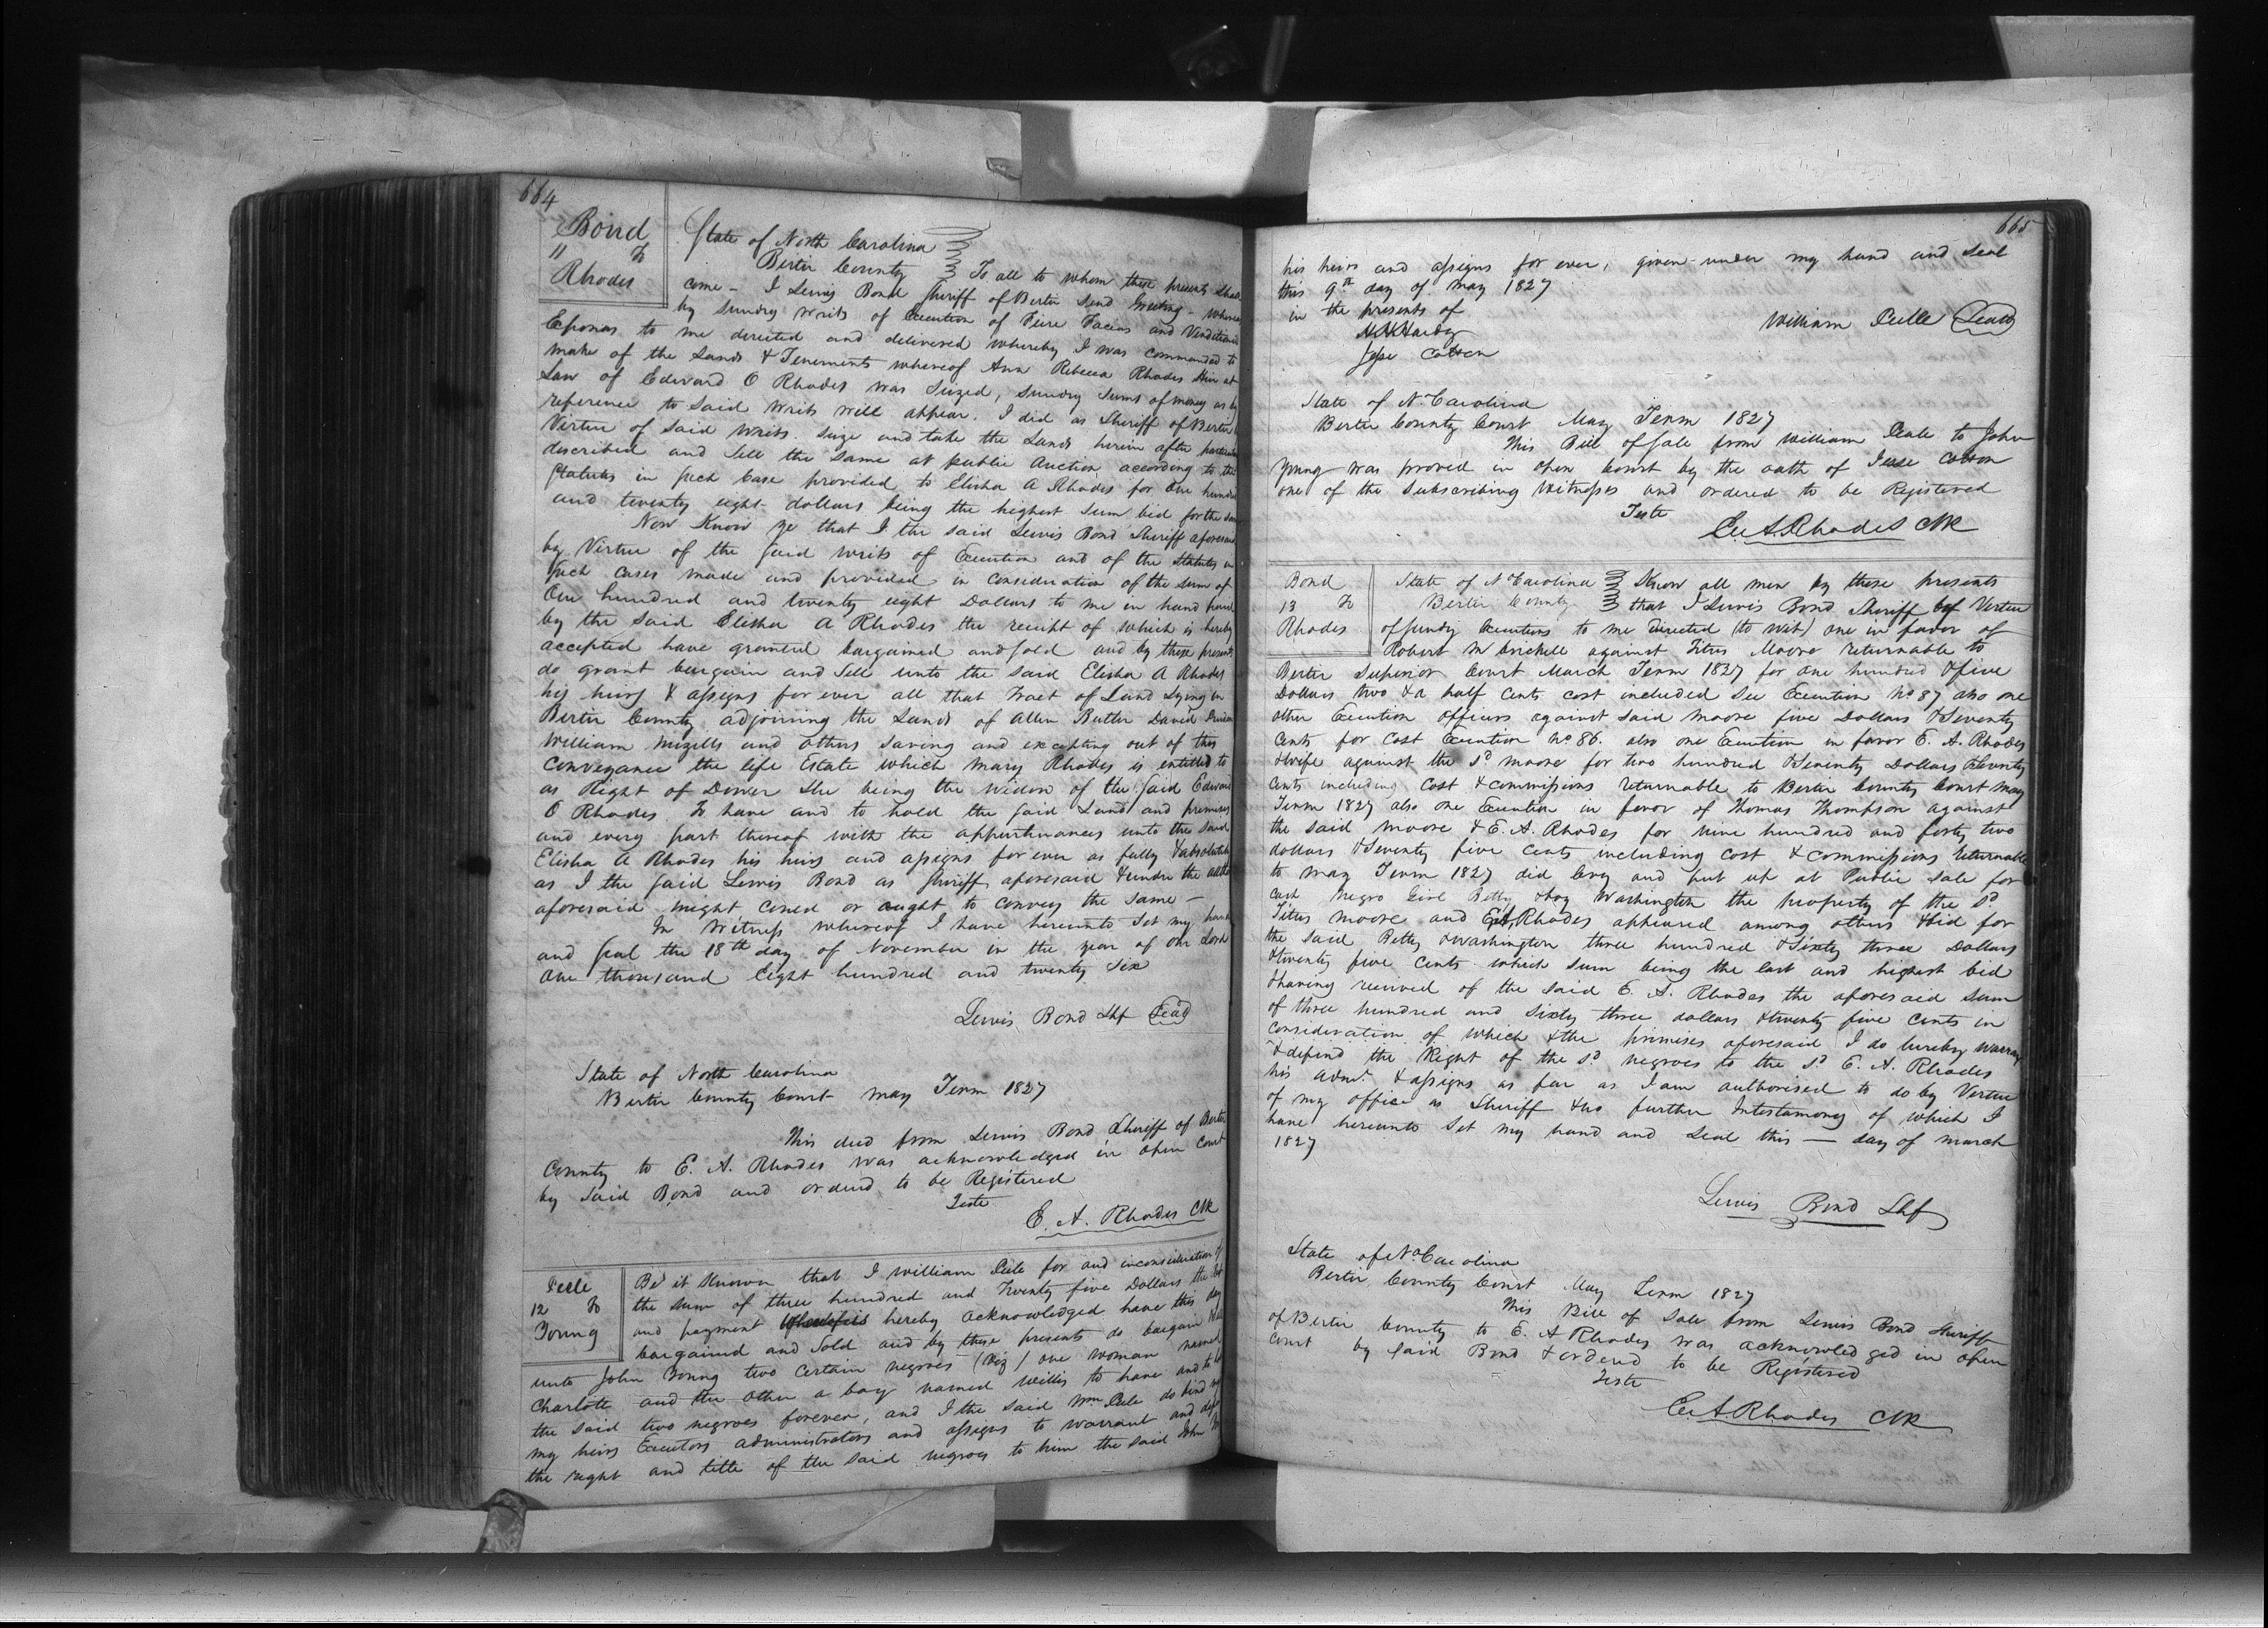 664
Bond
11 to
Rhodes
State of North Carolina
Bertie County To all to whom these presents shall
come - I Lewis Bond Sheriff of Bertie Send Greeting - Whereas
by Sundry Writs of Execution of Fiere Facias and Venditioni
Exponas to me directed and delivered whereby I was commanded to
make of the Lands & Tenements whereof Ann Rebecca Rhodes Heir at
Law of Edward O Rhodes was Seized, Sundry Sums of money as by
reference to said Writs will appear. I did as Sheriff of Bertie by
Virtue of said Writs Seize and take the Lands herein after
described and Sell the Same at public Auction according to the
Statutes in Such Case provided to Elisha A Rhodes for One hundred
and twenty eight dollars being the highest Sum bid for the Same
Now Know ye that I the said Lewis Bond Sheriff aforesaid
by Virtue of the Said writs of Execution and of the Statutes in
Such Cases made and provided in Consideration of the Sum of
One hundred and twenty eight Dollars to me in hand paid
by the said Elisha A Rhodes the receipt of which is hereby
accepted have granted bargained and sold and by these presents
do grant bargain and Sell unto the said Elisha A Rhodes
his heirs & assigns for ever all that Tract of Land Lying in
Bertie County adjoining the Lands of Allen Butler David
William Mizells and others saving and excepting out of this
Conveyance the life Estate which Mary Rhodes is entitled to
as Right of Dower She being the Widow of the Said Edward
O Rhodes To have and to hold the Said Land and premises
and every part thereof with the appurtenances unto the said
Elisha A Rhodes his heirs and assigns for ever as fully & absolutely
as I the Said Lewis Bond as Sheriff aforesaid & under the
aforesaid might Could or ought to Convey the Same -
In Witness whereof I have hereunto Set my hand
and Seal the 18th day of November in the year of our Lord
One thousand Eight hundred and twenty Six
Lewis Bond Shf Seal
State of North Carolina
Bertie County Court May Term 1827
This deed from Lewis Bond Sheriff of Bertie
County to E. A. Rhodes was acknowledged in open Court
by said Bond and ordered to be Registered
Teste
E. A. Rhodes Clk
Peele
12 to
Young
Be it Known that I William Peele for and in consideration of
the sum of three hundred and Twenty five Dollars the
and payment hereby acknowledged have this day
bargained and Sold and by these presents do bargain
unto John Young two certain negroes (Viz) one woman named
Charlotte and the other a boy named Willis to have and to
the said two negroes forever, and I the said Wm Peele do bind
my heirs Executors administrators and assigns to warrant and
the right and title of the said negroes to him the said John
665
his heirs and assigns for ever, given under my hand and Seal
this 9th day of May 1827
in the presents of
Hardy
Jesse Cotten
William Peele Seal
State of N. Carolina
Bertie County Court May Term 1827
This Bill of Sale from William Peale to John
Young was proved in open Court by the oath of Jesse Cotton
one of the Subscribing Witnesses and ordered to be Registered
Teste
E. A. Rhodes Clk
Bond
13 to
Rhodes
State of N Carolina Know all men by these presents
Bertie County that I Lewis Bond Sheriff by Vertue
of Sundry Executions to me Directed (to wit) one in favor of
Robert M against Titus Moore returnable to
Bertie Superior Court March Term 1827 for One hundred & five
Dollars two & a half Cents Cost included See Execution No 87 also one
other Execution officers against said Moore five Dollars & Seventy
Cents for Cost Execution No 86. also one Execution in favor E. A. Rhodes
& wife against the sd Moore for two hundred & Seventy Dollars & Seventy
Cents including Cost & commissions returnable to Bertie County Court May
Term 1827 also one Execution in favor of Thomas Thompson against
the said Moore & E. A. Rhodes for nine hundred and forty two
dollars & Seventy five Cents including Cost & commissions returnable
to May Term 1827 did levy and put up at Public Sale for
cash Negro Girl Betty & boy Washington the property of the sd
Titus Moore and E A Rhodes appeared among others & bid for
the said Betty & Washington three hundred & Sixty three Dollars
& twenty five Cents which Sum being the last and highest bid
& having received of the said E. A. Rhodes the aforesaid Sum
of three hundred and Sixty three dollars & twenty five Cents in
Consideration of which & the premises aforesaid I do hereby warrant
& defend the Right of the sd negroes to the sd E. A. Rhodes
his admr & assigns as far as I am authorised to do by Vertue
of my office as Sheriff & no further Intestamony of which I
have hereunto Set my hand and Seal this — day of March
1827
Lewis Bond Shf
State of No Carolina
Bertie County Court May Term 1827
This Bill of Sale from Lewis Bond Sheriff
of Bertie County to E. A Rhodes was acknowledged in open
Court by Said Bond & ordered to be Registered
Teste
E. A. Rhodes Clk